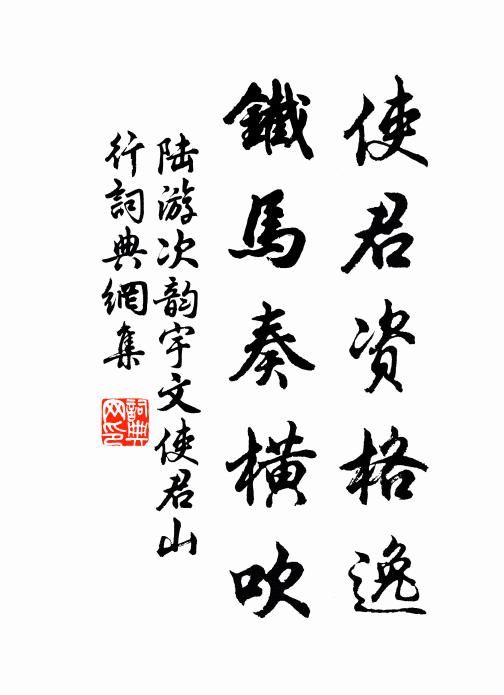 使君资格逸
鐵馬奏橫吹
陆游次韵宇文使君山
行詞典網集
詞典网印